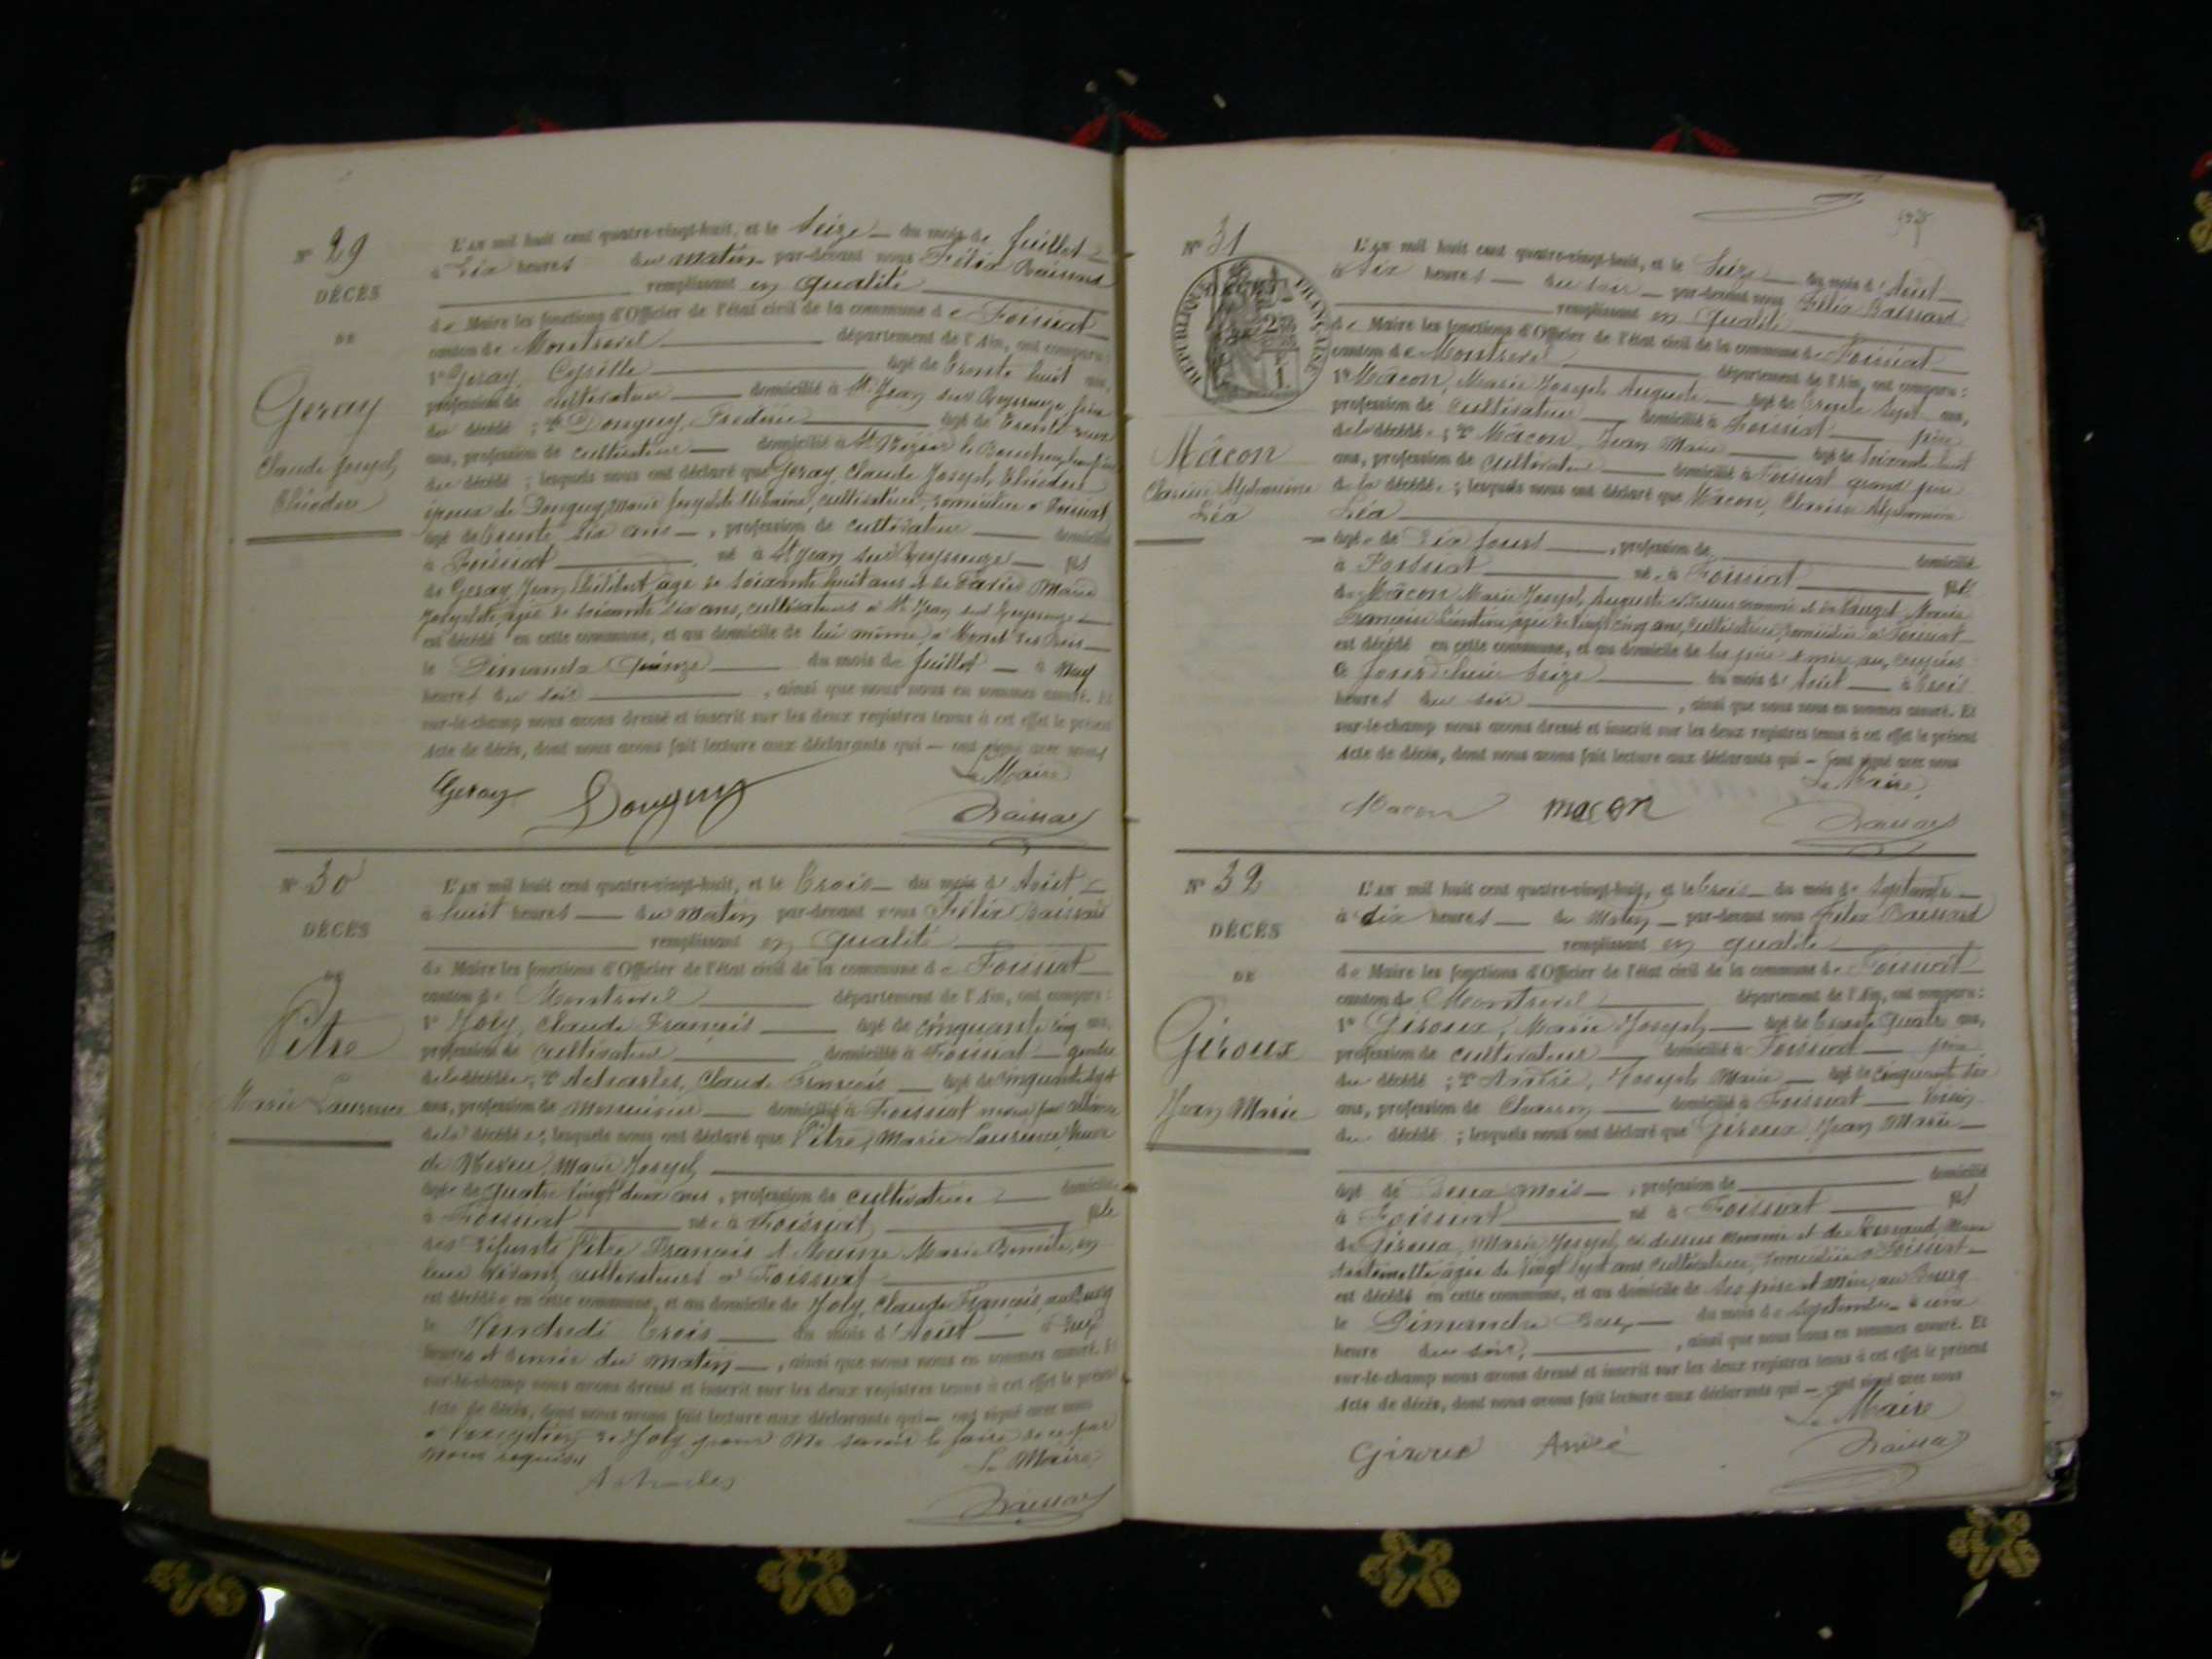 N° 29
DÉCÈS
DE
Geray
Claude Joseph
Théodore
L'AN mil huit cent quatre-vingt-huit, et le Seize du mois de Juillet
à dix heures du matin par-devant nous Félix Baissard
remplissant en qualité
de Maire les fonctions d'Officier de l'état civil de la commune de Foissiat
canton de Montrevel département de l'Ain, ont comparu:
1° Geray, Cyrille âgé de trente huit ans,
profession de cultivateur domicilié à St Jean sur Reyssouze frère
du décédé ; 2° Donguy, Frédéric âgé de trente
ans, profession de cultivateur domicilié à St Trizier le beau frère
du décédé ; lesquels nous ont déclaré que Geray, Claude Joseph, Théodore
époux de Donguy, Marie Josephte cultivatrice, domiciliée à Foissiat
âgé de trente six ans, profession de cultivateur domicilié
à Foissiat né à St Jean sur Reyssouze fils
de Geray, Jean Philibert âgé de soixante huit ans et de Marie
Josephte, âgée de soixante six ans, cultivateurs à St Jean sur Reyssouze
est décédé en cette commune, et au domicile de lui même, à
le Dimanche Quinze du mois de Juillet à neuf
heures du soir, ainsi que nous nous en sommes assuré. Et
sur-le-champ nous avons dressé et inscrit sur les deux registres tenus à cet effet le présent
Acte de décès, dont nous avons fait lecture aux déclarants qui — ont signé avec nous
Le Maire
Geray Donguy Baissard
N° 30
DÉCÈS
DE
Pitre
Marie Laurence
L'AN mil huit cent quatre-vingt-huit, et le trois du mois d'Août
à huit heures du matin par-devant nous Félix Baissard
remplissant en qualité
de Maire les fonctions d'Officier de l'état civil de la commune de Foissiat
canton de Montrevel département de l'Ain, ont comparu:
1° Joly, Claude François âgé de cinquante cinq ans,
profession de cultivateur domicilié à Foissiat gendre
de la décédée ; 2° Claude François âgé de cinquante sept
ans, profession de menuisier domicilié à Foissiat neveu par alliance
de la décédée ; lesquels nous ont déclaré que Pitre, Marie Laurence, veuve
de Marie Joseph
âgée de quatre vingt deux ans, profession de cultivatrice domiciliée
à Foissiat née à Foissiat fille
des défunts Pitre François et Marie Benoite, en
leur vivant, cultivateurs à Foissiat
est décédée en cette commune, et au domicile de Joly, Claude François, au Bourg
le Vendredi trois du mois d'Août à deux
heures et demie du matin, ainsi que nous nous en sommes assuré. Et
sur-le-champ nous avons dressé et inscrit sur les deux registres tenus à cet effet le présent
Acte de décès, dont nous avons fait lecture aux déclarants qui — ont signé avec nous
à l'exception de Joly pour ne savoir le faire de ce par
nous requis
Le Maire
Baissard
N° 31
RÉPUBLIQUE FRANÇAISE
Mâcon
Clarisse Alphonsine
Léa
L'AN mil huit cent quatre-vingt-huit, et le Seize du mois d'Août
à six heures du soir par-devant nous Félix Baissard
remplissant en qualité
de Maire les fonctions d'Officier de l'état civil de la commune de Foissiat
canton de Montrevel département de l'Ain, ont comparu:
1° Mâcon, Marie Joseph Auguste âgé de trente sept ans,
profession de cultivateur domicilié à Foissiat père
de la décédée ; 2° Mâcon, Jean Marie âgé de soixante huit
ans, profession de cultivateur domicilié à Foissiat grand père
de la décédée ; lesquels nous ont déclaré que Mâcon, Clarisse Alphonsine
Léa
âgée de dix jours, profession de domiciliée
à Foissiat née à Foissiat fille
de Mâcon, Marie Joseph, Auguste ci-dessus nommé et de Marie
Françoise âgée de vingt cinq ans, cultivatrice, domiciliée à Foissiat
est décédée en cette commune, et au domicile de ses père et mère, au
le jour d'hui seize du mois d'Août à trois
heures du soir, ainsi que nous nous en sommes assuré. Et
sur-le-champ nous avons dressé et inscrit sur les deux registres tenus à cet effet le présent
Acte de décès, dont nous avons fait lecture aux déclarants qui — ont signé avec nous
Le Maire,
Macon macon Baissard
N° 32
DÉCÈS
DE
Giroux
Jean Marie
L'AN mil huit cent quatre-vingt-huit, et le trois du mois de Septembre
à dix heures du Matin par-devant nous Félix Baissard
remplissant en qualité
de Maire les fonctions d'Officier de l'état civil de la commune de Foissiat
canton de Montrevel département de l'Ain, ont comparu:
1° Giroux, Marie Joseph âgé de trente quatre ans,
profession de cultivateur domicilié à Foissiat père
du décédé ; 2° Joseph Marie âgé de cinquante six
ans, profession de Charron domicilié à Foissiat voisin
du décédé ; lesquels nous ont déclaré que Giroux Jean Marie
âgé de deux mois, profession de domicilié
à Foissiat né à Foissiat fils
de Giroux, Marie Joseph, ci dessus nommé et de Marie
Antoinette âgée de vingt sept ans cultivatrice, domiciliée à Foissiat
est décédé en cette commune, et au domicile de ses père et mère, au Bourg
le Dimanche deux du mois de Septembre à une
heure du soir, ainsi que nous nous en sommes assuré. Et
sur-le-champ nous avons dressé et inscrit sur les deux registres tenus à cet effet le présent
Acte de décès, dont nous avons fait lecture aux déclarants qui — ont signé avec nous
Le Maire
Giroux Baissard